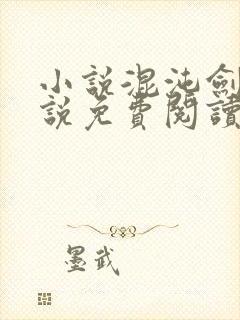 小說混沌劍
說免費閱讀
墨武